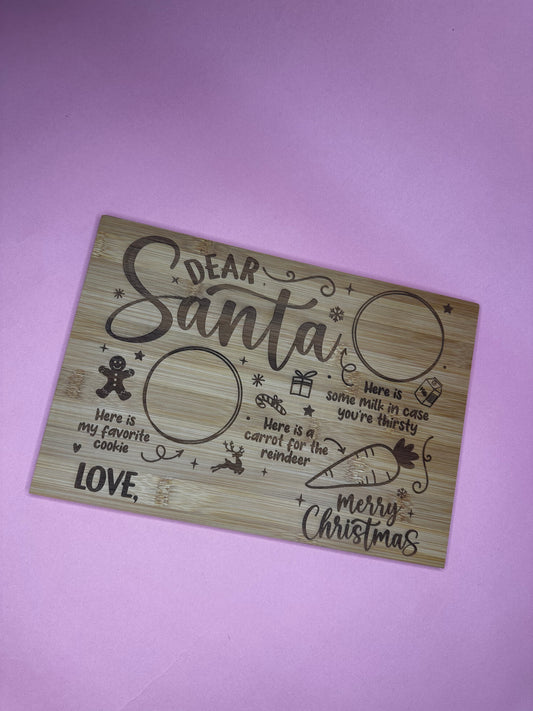 DEAR
Santa
Here is
some milk in case
you're thirsty
Here is
my favorite
cookie
Here is a
carrot for the
reindeer
LOVE,
merry
Christmas